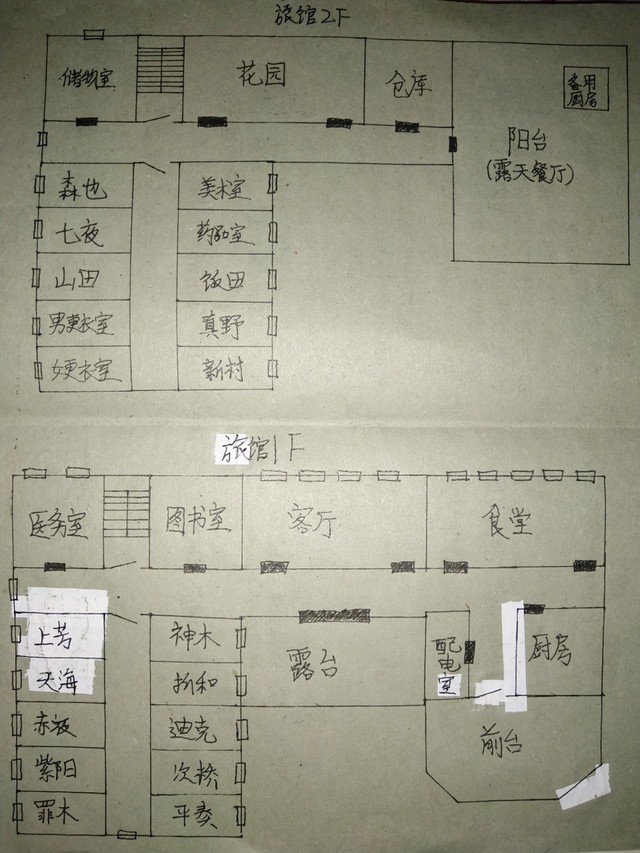 旅馆2F
储物室
花园
仓库
备用
厨房
阳台
(露天餐厅)
森也
美术室
七夜
药剂室
山田
饭田
男更衣室
真野
女更衣室
新村
旅馆1F
医务室
图书室
客厅
食堂
上芳
神木
露台
配
电
室
厨房
天海
折和
赤坂
迪克
前台
紫阳
次桥
罪木
平奏